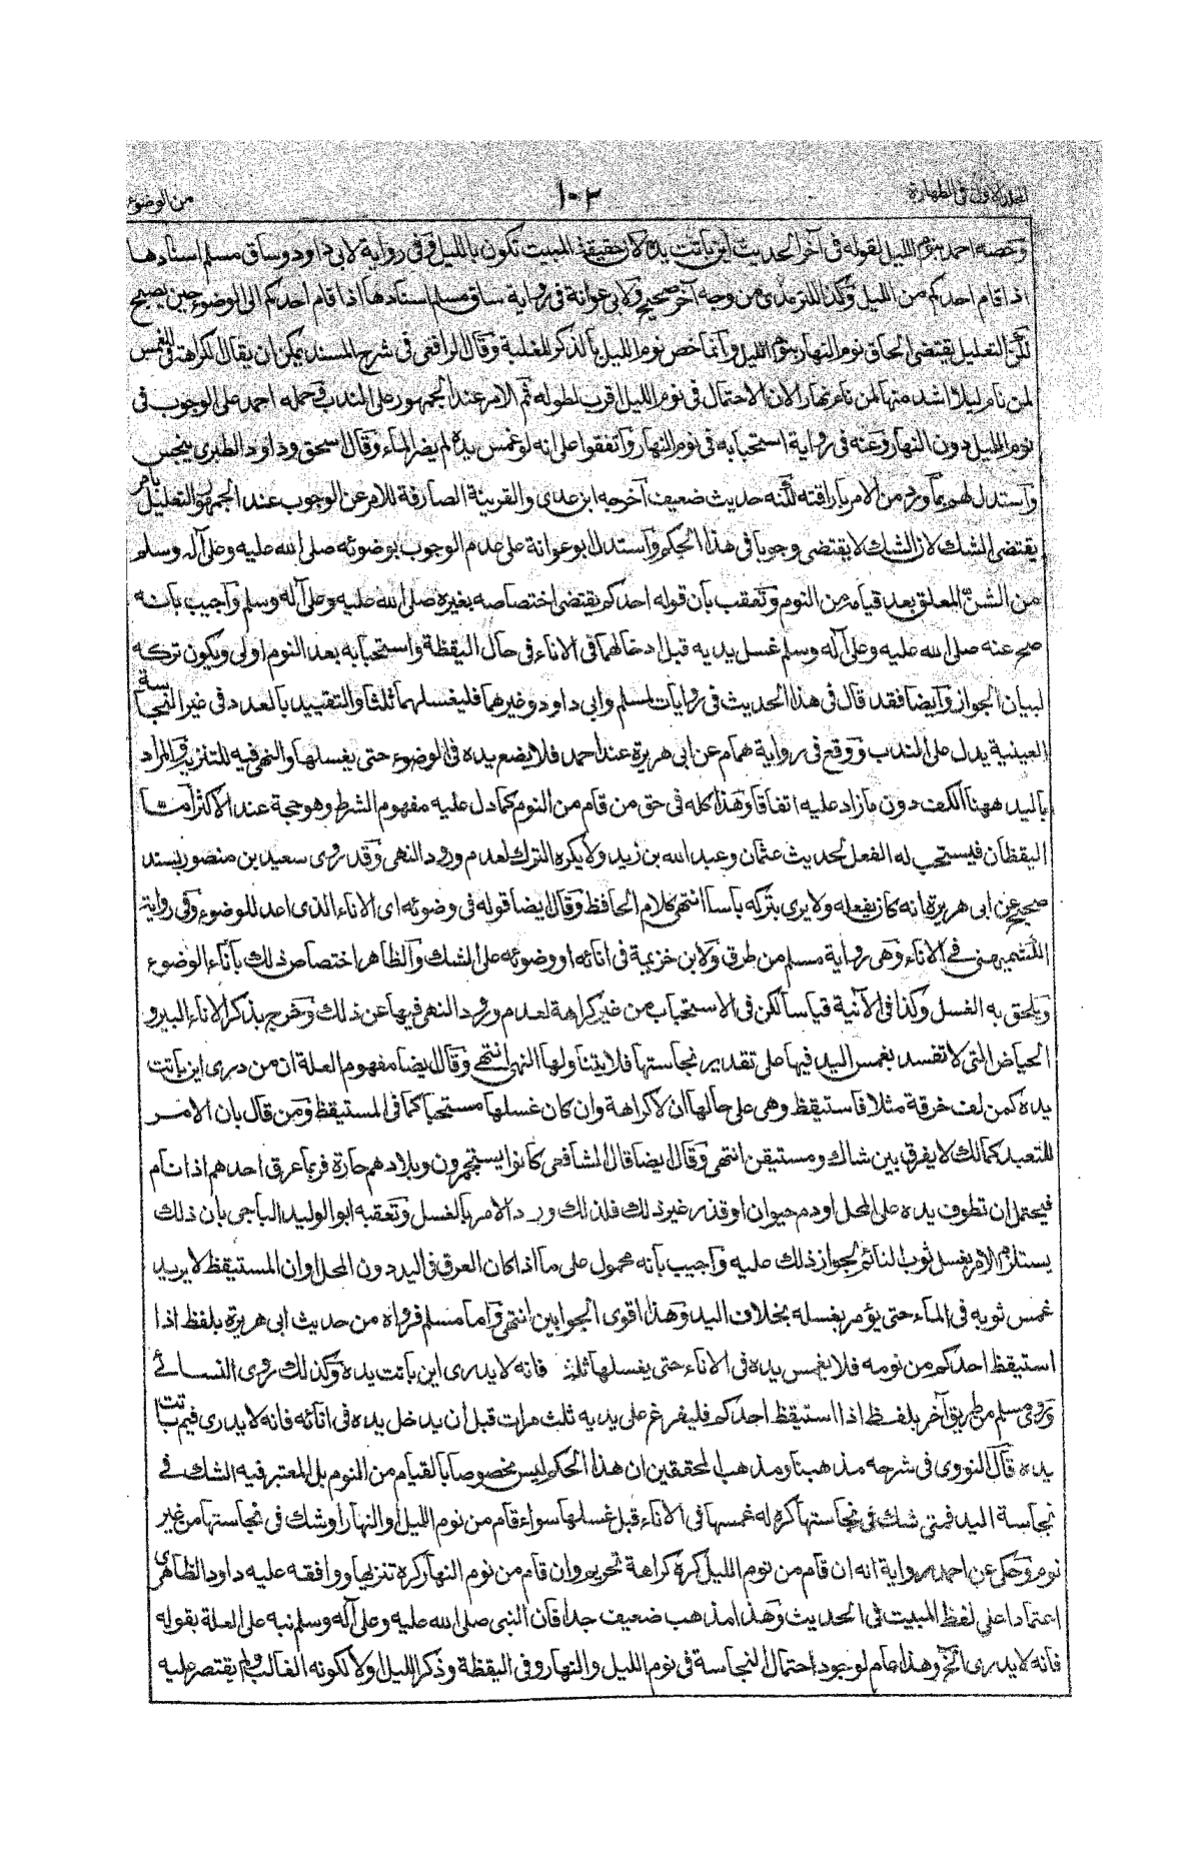 المجلد الاول فى الطهارة
١٠٢
من الوضوء
وخصه احمد بنوم الليل لقوله فى آخر الحديث اين باتت يده لان حقيقة المبيت تكون بالليل وفى رواية لابى داود وساق مسلم اسنادها
اذا قام احدكم من الليل وكذا للترمذى من وجه آخر صحيح ولابى عوانة فى رواية ساق مسلم اسنادها اذا قام احدكم الى الوضوء حين يصبح
لكن التعليل يقتضى الحاق نوم النهار بنوم الليل وانما خص نوم الليل بالذكر للغلبة وقال الرافعى فى شرح المسند يمكن ان يقال الكراهة فى الغمس
لمن نام ليلا اشد منها لمن نام نهارا لان الاحتمال فى نوم الليل اقرب لطوله ثم الامر عند الجمهور على الندب وحمله احمد على الوجوب فى
نوم الليل دون النهار وعنه فى رواية استحبابه فى نوم النهار واتفقوا على انه لو غمس يده لم يضر الماء وقال اسحق وداود الطبرى ينجس
واستدل لهم بما ورد من الامر باراقته لكنه حديث ضعيف اخرجه ابن عدى والقرينة الصارفة للامر عن الوجوب عند الجمهور التعليل بامر
يقتضى الشك لان الشك لا يقتضى وجوبا فى هذا الحكم واستدل ابو عوانة على عدم الوجوب بوضوئه صلى الله عليه وعلى آله وسلم
من الشن المعلق بعد قيامه من النوم وتعقب بان قوله احدكم يقتضى اختصاصه بغيره صلى الله عليه وعلى آله وسلم واجيب بانه
صح عنه صلى الله عليه وعلى آله وسلم غسل يديه قبل ادخالهما فى الاناء فى حال اليقظة واستحبابه بعد النوم اولى ويكون تركه
لبيان الجواز وايضا فقد قال فى هذا الحديث فى روايات لمسلم وابى داود وغيرهما فليغسلهما ثلثا والتقييد بالعدد فى غير النجاسة
العينية يدل على الندب ووقع فى رواية همام عن ابى هريرة عند احمد فلا يضع يده فى الوضوء حتى يغسلها والنهى فيه للتنزيه والمراد
باليد ههنا الكف دون ما زاد عليه اتفاقا وهذا كله فى حق من قام من النوم كما دل عليه مفهوم الشرط وهو حجة عند الاكثر امّا
اليقظان فيستحب له الفعل لحديث عثمان وعبد الله بن زيد ولا يكره الترك لعدم ورود النهى وقد روى سعيد بن منصور بسند
صحيح عن ابى هريرة انه كان يفعله ولا يرى بتركه بأسا انتهى كلام الحافظ وقال ايضا قوله فى وضوئه اى الاناء الذى اعد للوضوء وفى رواية
الكشميهنى فى الاناء وهى رواية مسلم من طرق ولابن خزيمة فى انائه او وضوئه على الشك والظاهر اختصاص ذلك باناء الوضوء
ويلحق به الغسل وكذا فى الآنية قياسا لكن فى الاستحباب من غير كراهة لعدم ورود النهى فيها عن ذلك وخرج بذكر الاناء البير و
الحياض التى لا تفسد بغمس اليد فيها على تقدير نجاستها فلا يتناولها النهى انتهى وقال ايضا مفهوم العلة ان من درى اين باتت
يده كمن لف خرقة مثلا فاستيقظ وهى على حالها ان لا كراهة وان كان غسلها مستحبا كما فى المستيقظ ومن قال بان الامر
للتعبد كمالك لا يفرق بين شاك ومستيقن انتهى وقال ايضا قال الشافعى كانوا يستجمرون وبلادهم حارة فربما عرق احدهم اذا نام
فيحتمل ان تطوف يده على المحل او دم حيوان او قذر غير ذلك فلذلك ورد الامر بالغسل وتعقبه ابو الوليد الباجى بان ذلك
يستلزم الامر بغسل ثوب النائم لجواز ذلك عليه واجيب بانه محمول على ما اذا كان العرق فى اليد دون المحل او ان المستيقظ لا يريد
غمس ثوبه فى الماء حتى يؤمر بغسله بخلاف اليد وهذا اقوى الجوابين انتهى واما مسلم فرواه من حديث ابى هريرة بلفظ اذا
استيقظ احدكم من نومه فلا يغمس يده فى الاناء حتى يغسلها ثلثا فانه لا يدرى اين باتت يده وكذلك روى النسائى
وروى مسلم من طريق آخر بلفظ اذا استيقظ احدكم فليفرغ على يديه ثلث مرات قبل ان يدخل يده فى انائه فانه لا يدرى فيم باتت
يده قال النووى فى شرحه مذهبنا ومذهب المحققين ان هذا الحكم ليس مخصوصا بالقيام من النوم بل المعتبر فيه الشك فى
نجاسة اليد فمتى شك فى نجاستها كره له غمسها فى الاناء قبل غسلها سواء قام من نوم الليل او النهار او شك فى نجاستها من غير
نوم وحكى عن احمد رواية انه ان قام من نوم الليل كره كراهة تحريم وان قام من نوم النهار كره تنزيها ووافقه عليه داود الظاهرى
اعتمادا على لفظ المبيت فى الحديث وهذا مذهب ضعيف جدا فان النبى صلى الله عليه وعلى آله وسلم نبه على العلة بقوله
فانه لا يدرى الخ وهذا عام لوجود احتمال النجاسة فى نوم الليل والنهار وفى اليقظة وذكر الليل اولا لكونه الغالب ولم يقتصر عليه